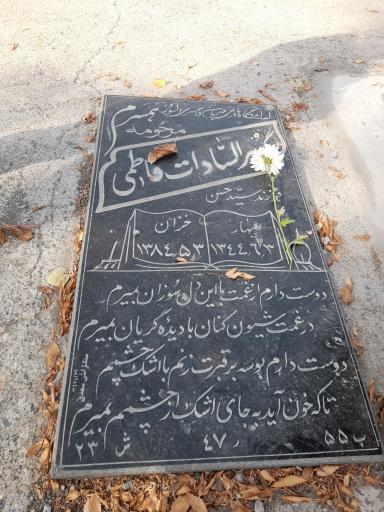 آرامگاه مادری مهربان و همسری دلسوز
مرحومه
السادات فاطمی
فرزند سید حسن
بهار خزان
۱۳۴۴٫۶٫۳ ۱۳۸۴٫۵٫۳
دوست دارم از غمت با این دل سوزان بمیرم
در غمت شیون کنان با دیده گریان بمیرم
دوست دارم بوسه بر قبرت زنم با اشک چشمم
تا که خون آید به جای اشک از چشمم بمیرم
ب ۵۵ ر ۴۷ ش ۲۳